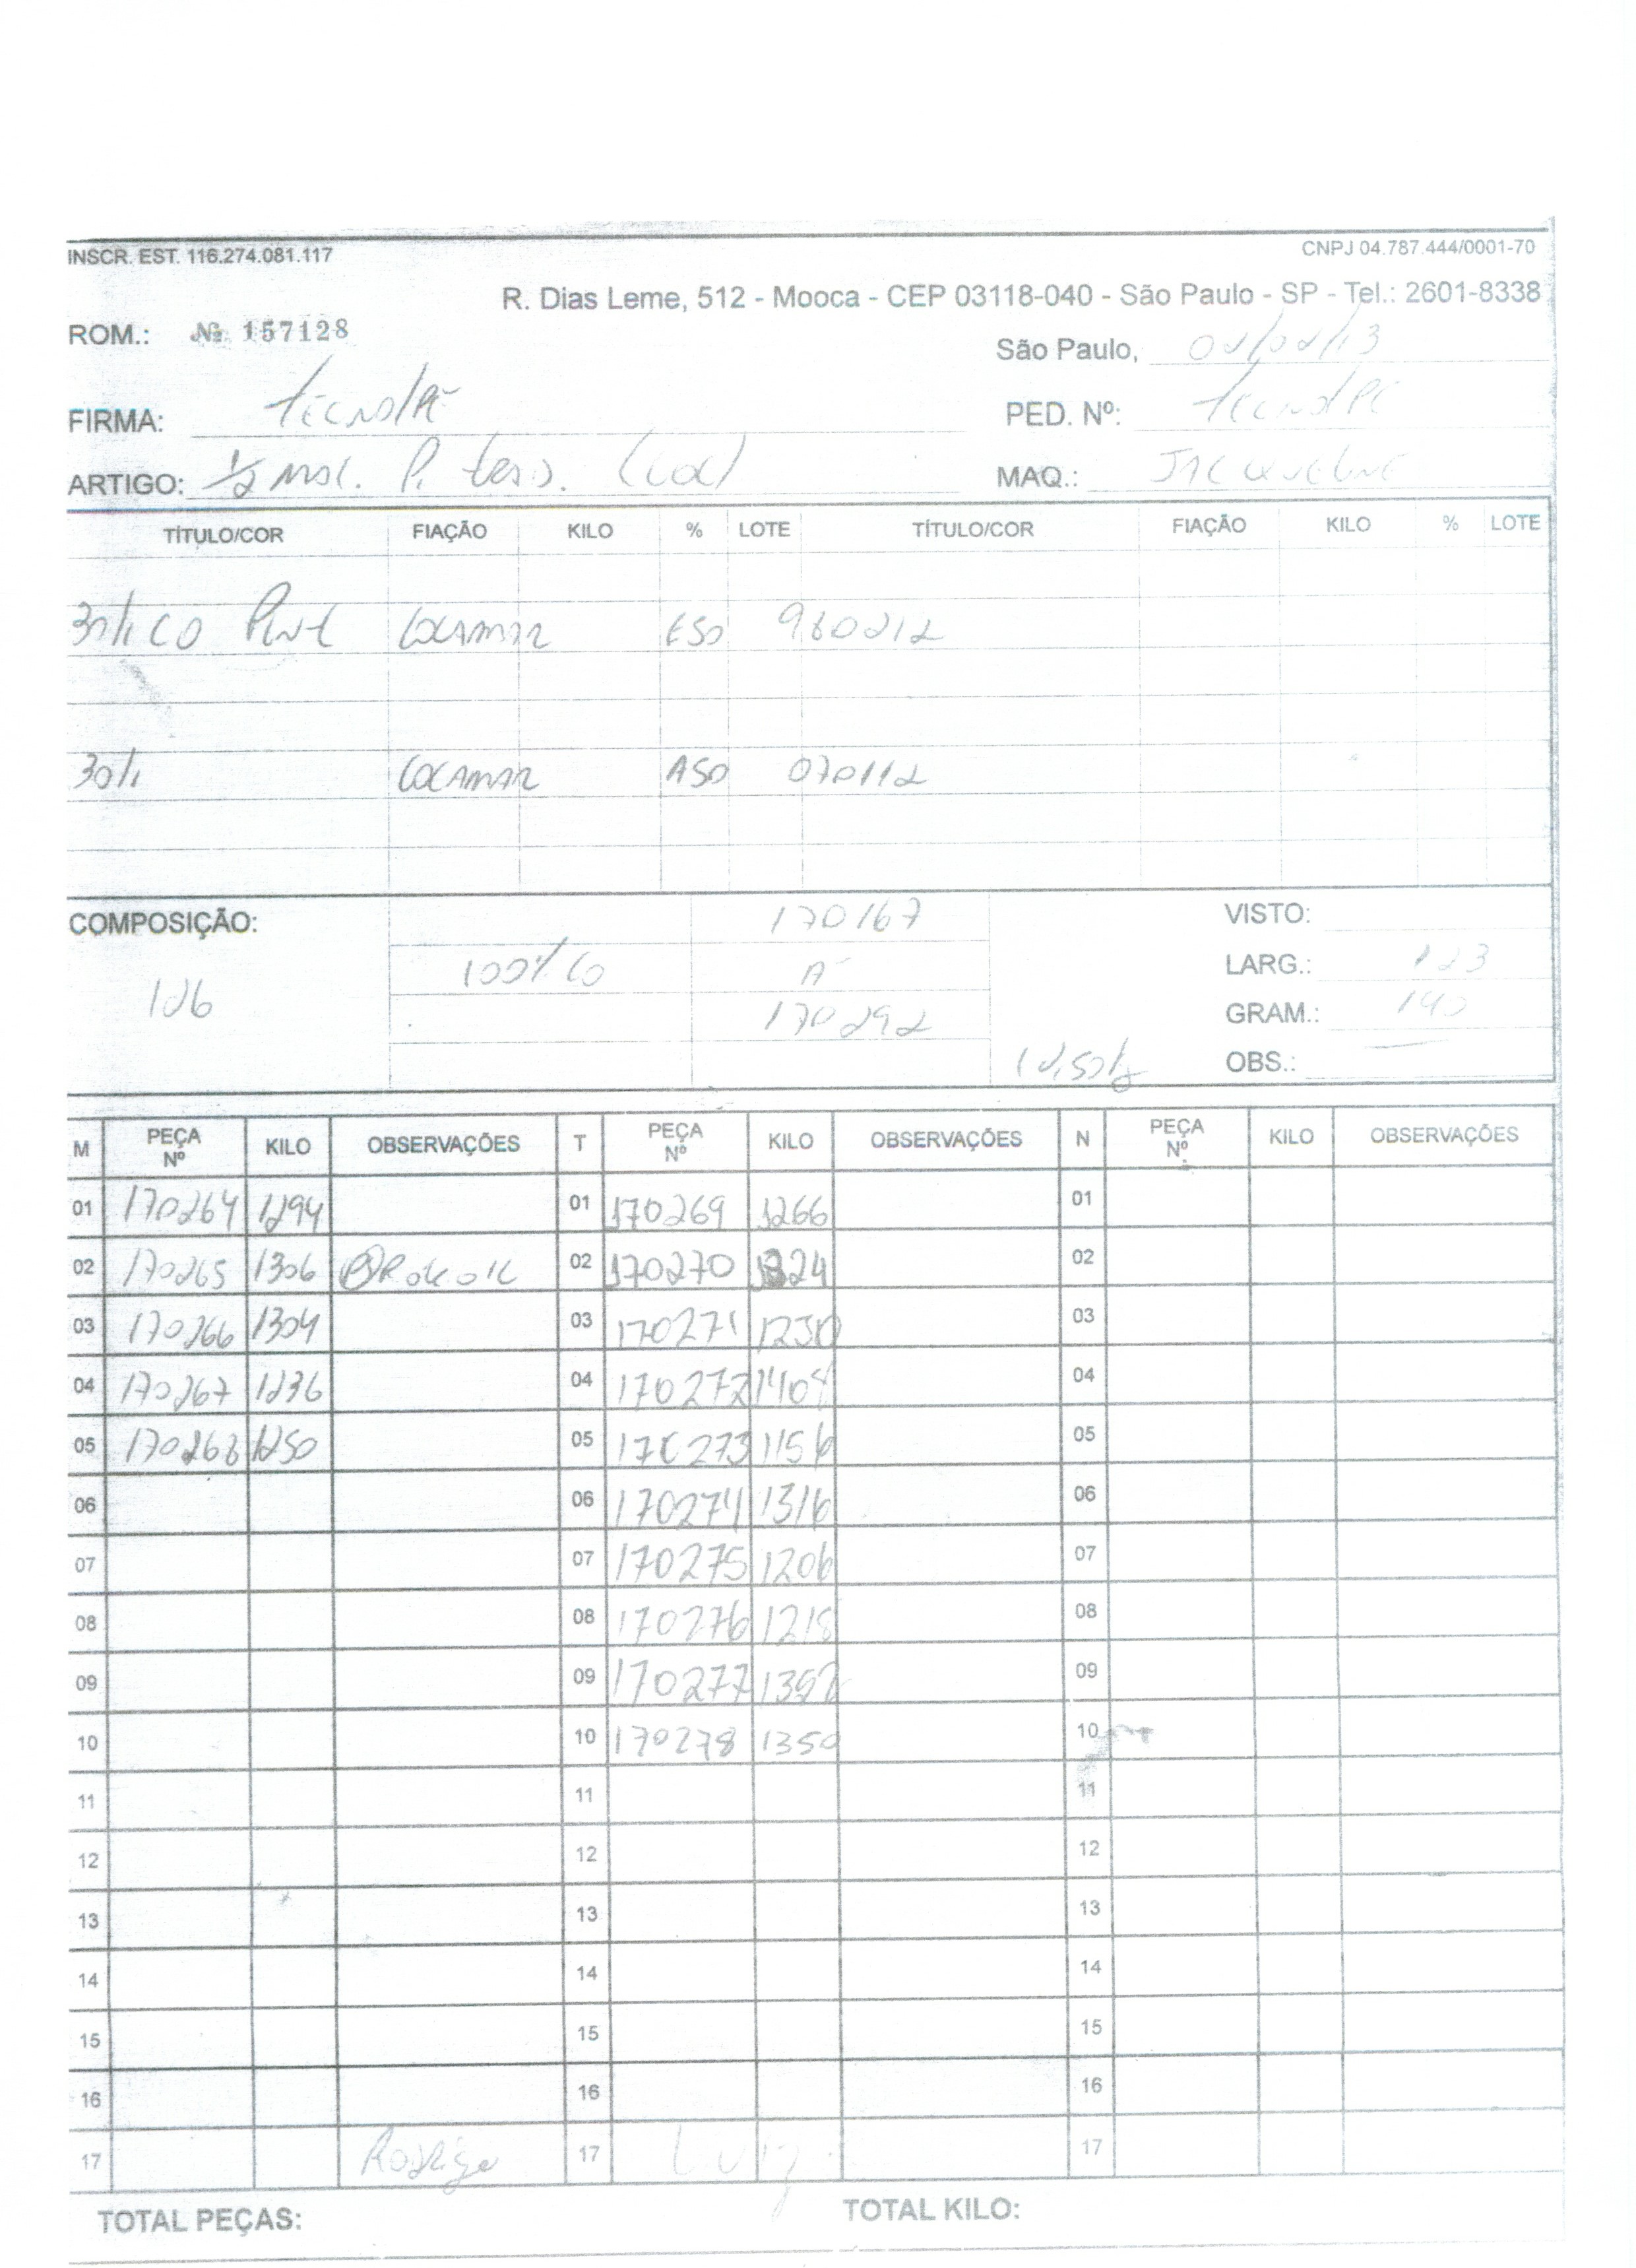 INSCR. EST. 116.274.081.117 CNPJ 04.787.444/0001-70
R. Dias Leme, 512 - Mooca - CEP 03118-040 - São Paulo - SP - Tel.: 2601-8338
ROM.: Nº 157128
São Paulo,
FIRMA: PED. Nº:
ARTIGO: 1/2 MAQ.:
TÍTULO/COR FIAÇÃO KILO % LOTE TÍTULO/COR FIAÇÃO KILO % LOTE
30/1 CO COCAMAR ESD 980212
30/1 COCAMAR ASD 070112
COMPOSIÇÃO: 170167 VISTO:
100% CO A LARG.: 123
126 170292 GRAM.: 140
OBS.:
M PEÇA Nº KILO OBSERVAÇÕES T PEÇA Nº KILO OBSERVAÇÕES N PEÇA Nº KILO OBSERVAÇÕES
01 170264 1294 01 170269 1266 01
02 170265 1306 02 170270 1324 02
03 170266 1304 03 170271 1230 03
04 170267 1236 04 170272 1404 04
05 170268 1250 05 170273 1156 05
06 06 170274 1316 06
07 07 170275 1206 07
08 08 170276 1218 08
09 09 170277 09
10 10 170278 1350 10
11 11 11
12 12 12
13 13 13
14 14 14
15 15 15
16 16 16
17 Rodrigo 17 Luiz 17
TOTAL PEÇAS: TOTAL KILO: